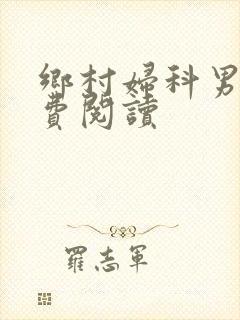 鄉村婦科男
費閱讀
羅志軍